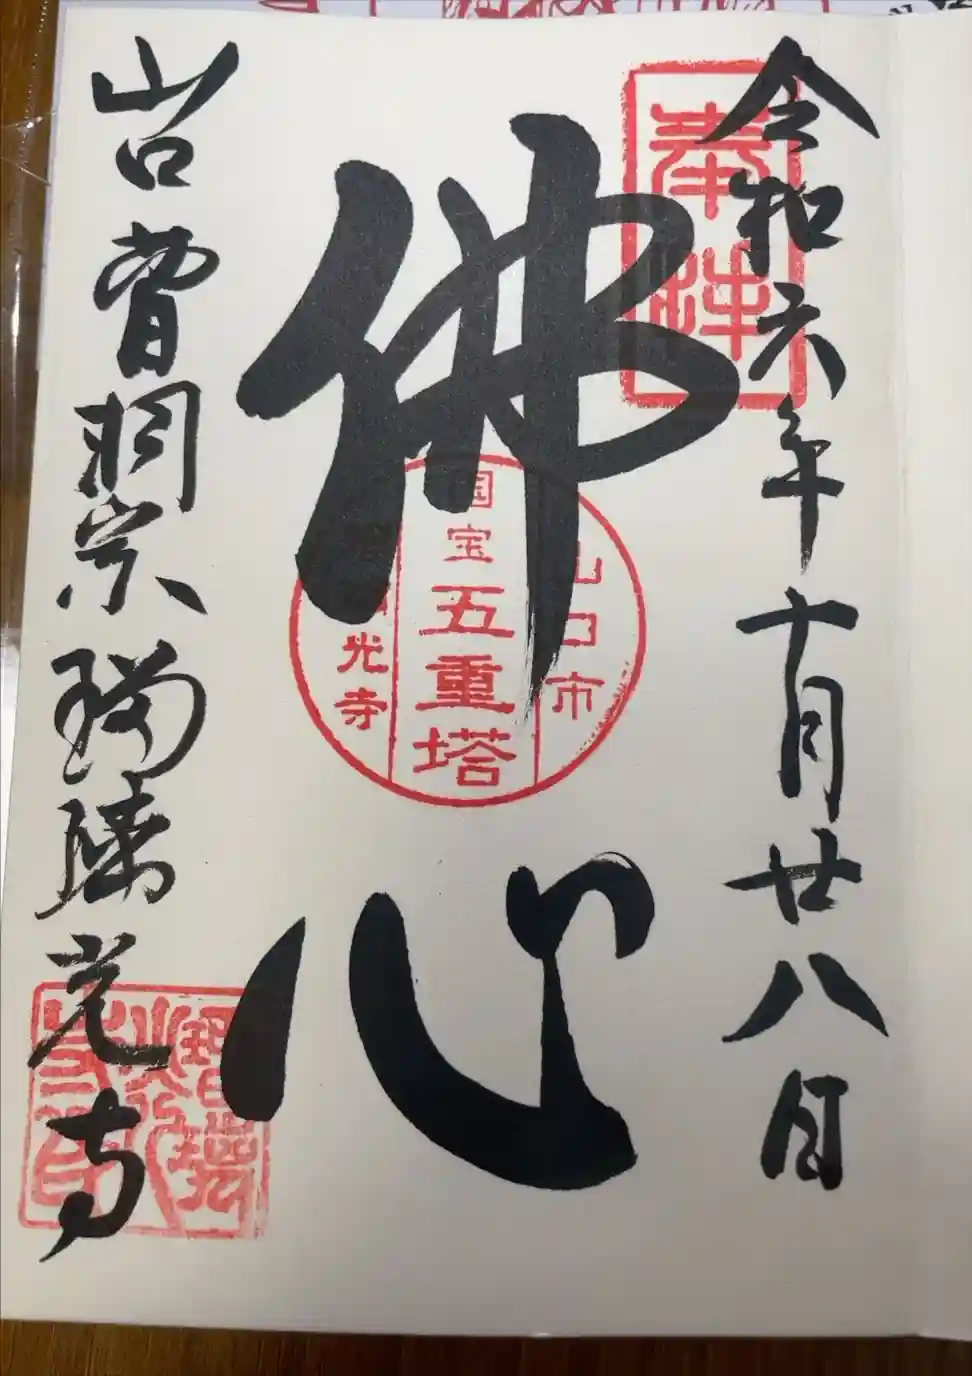 令和六年十月廿八日
奉拝
佛心
山口市
国宝
五重塔
光寺
山口曹洞宗瑠璃光寺